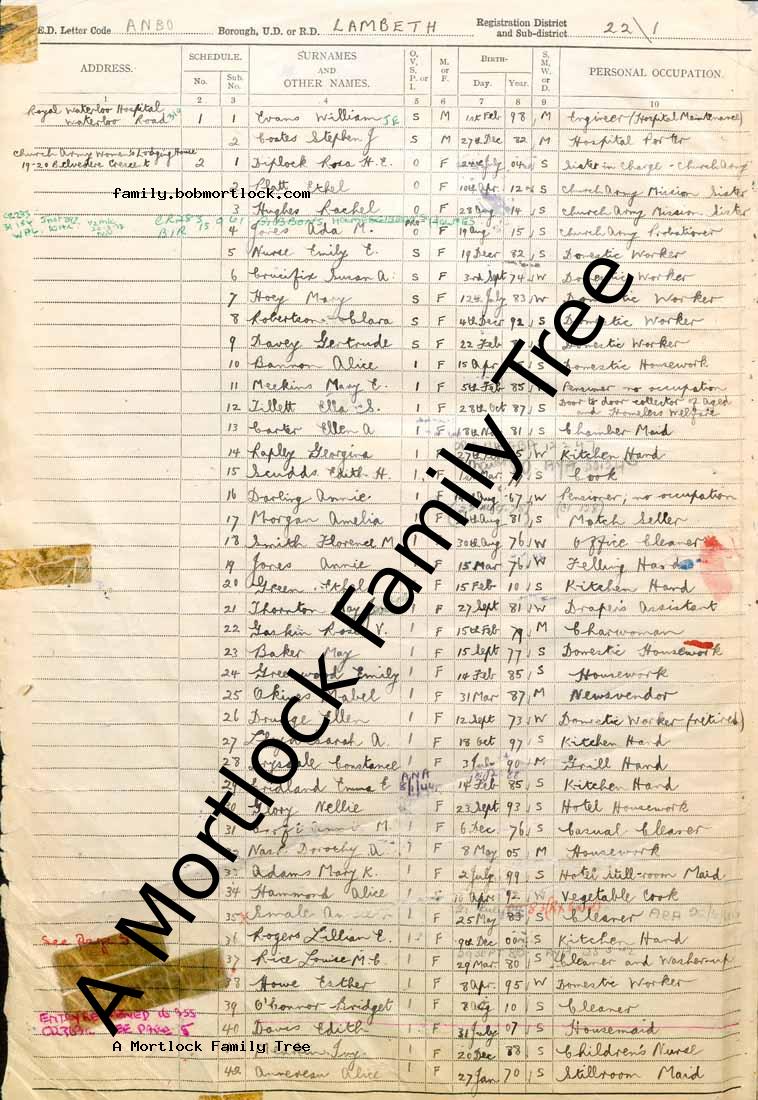 E.D. Letter Code ANBO Borough, U.D. or R.D. LAMBETH Registration District and Sub-district 22/1
ADDRESS. SCHEDULE. No. Sub. No. SURNAMES AND OTHER NAMES. O, V, S, P, or I. M. or F. BIRTH- Day. Year. S, M, W, or D. PERSONAL OCCUPATION.
1 2 3 4 5 6 7 8 9 10
Royal Waterloo Hospital
Waterloo Road 1 1 Evans William S M 1st Feb 98 M Engineer (Hospital Maintenance)
2 Coates Stephen J S M 27th Dec 82 M Hospital Porter
Church Army Women's Lodging House
19-20 Belvedere Crescent 2 1 Diplock Rosa H.E. O F July 04 Sister in Charge - Church Army
family.bobmortlock.com
2 Platt Ethel O F 10th Apr 12 S Church Army Mission Sister
3 Hughes Rachel O F 28 Aug 14 S Church Army Mission Sister
4 Jones Ada M. O F 19 Aug 15 S Church Army Probationer
5 Nurse Emily E. S F 19 Dec 82 S Domestic Worker
6 Crucifix Susan A. S F 3rd Sept 74 W Domestic Worker
7 Hoey Mary S F 12th July 83 W Domestic Worker
8 Robertson Clara S F 4th Dec 92 S Domestic Worker
9 Davey Gertrude S F 22 Feb Domestic Worker
10 Bannon Alice I F 15 Apr S Domestic Housework
11 Meekins Mary E. I F 5th Feb 85 Pensioner no occupation
12 Tillett Ella S. I F 28th Oct 87 S Door to door collector of Aged and Homeless Welfare
13 Carter Ellen A I F 18th Nov 81 S Chamber Maid
14 Lapley Georgina I F 27th W Kitchen Hand
15 Scudds Edith H. I Mar S Cook
16 Darling Annie I F Aug 67 W Pensioner, no occupation
17 Morgan Amelia I Aug 81 S Match Seller
18 Smith Florence M I F 30th Aug 76 W Office Cleaner
19 Jones Annie F 15 Mar 76 W Felling Hand
20 Green Ethel F 15 Feb 10 S Kitchen Hand
21 Thornton May I F 27 Sept 81 W Draper's Assistant
22 Gaskin Rose V. I F 15th Feb 79 M Charwoman
23 Baker May I F 15 Sept 77 S Domestic Housework
24 Greenwood Emily I F 14 Feb 85 S Housework
25 Mabel I F 31 Mar 87 M Newsvendor
26 Ellen I F 12 Sept 73 W Domestic Worker (retired)
27 Sarah A. I F 18 Oct 97 S Kitchen Hand
28 Drysdale Constance I F 3 July 90 M Grill Hand
29 Fridland Emma E I F 14 Feb 85 S Kitchen Hand
30 Glory Nellie F 23 Sept 93 S Hotel Housework
31 M. I F 6 Dec 76 S Casual Cleaner
Nash Dorothy A. F 8 May 05 M Housework
33 Adams Mary K. I F 2 July 99 S Hotel Still-room Maid
34 Hammond Alice I Apr 92 W Vegetable Cook
35 Smale I F 25 May 83 S Cleaner
See Page 5 36 Rogers Lillian E. I F 9th Dec 00 S Kitchen Hand
37 Rice Louise M.C. I F 29 Mar 80 S Cleaner and Washer-up
38 Howe Esther I F 8 Apr 95 W Domestic Worker
39 O'Connor Bridget I F 8 Aug 10 S Cleaner
SEE PAGE 5 40 Davis Edith I F 31 July 07 S Housemaid
Ivy I F 20 Dec 88 S Children's Nurse
42 Alice I F 27 Jan 70 S Stillroom Maid
A Mortlock Family Tree
A Mortlock Family Tree